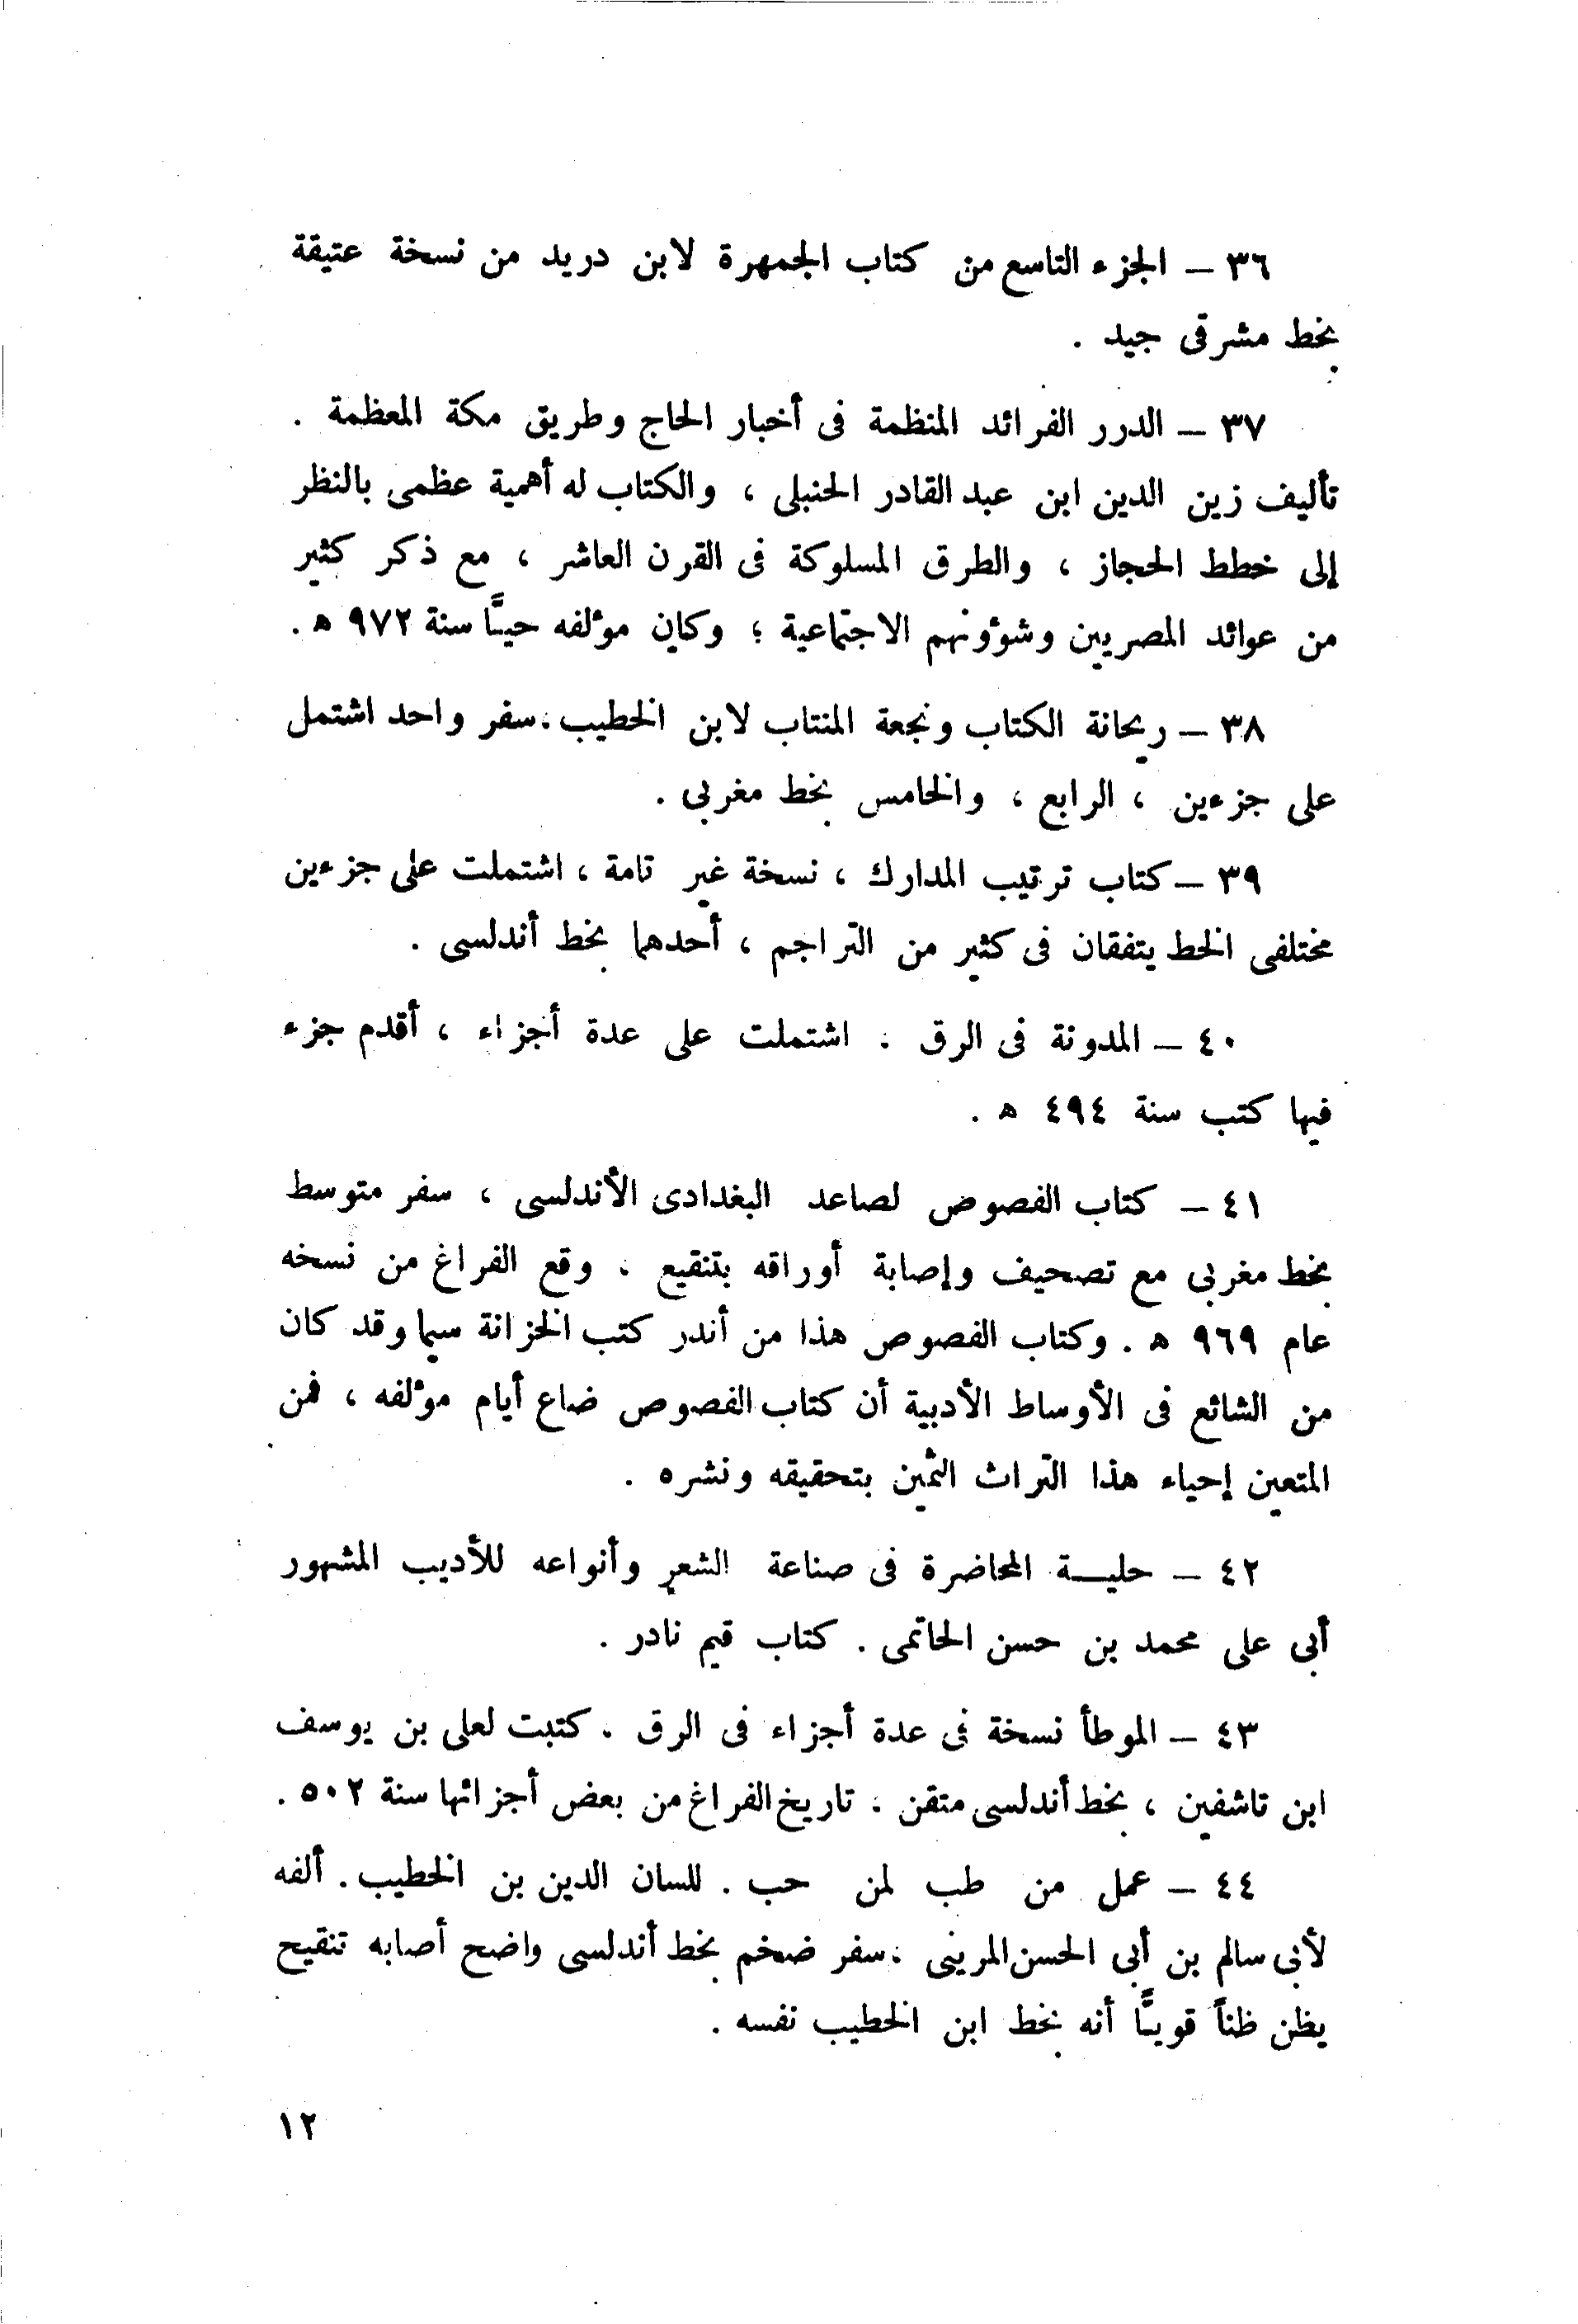 ٣٦ – الجزء التاسع من كتاب الجمهرة لابن دريد من نسخة عتيقة
بخط مشرقى جيد .
٣٧ – الدرر الفرائد المنظمة فى أخبار الحاج وطريق مكة المعظمة .
تأليف زين الدين ابن عبد القادر الحنبلى ، والكتاب له أهمية عظمى بالنظر
إلى خطط الحجاز ، والطرق المسلوكة فى القرن العاشر ، مع ذكر كثير
من عوائد المصريين وشؤونهم الاجتماعية ؛ وكان مؤلفه حيًّا سنة ٩٧٢ ه .
٣٨ – ريحانة الكتاب ونجعة المنتاب لابن الخطيب . سفر واحد اشتمل
على جزءين ، الرابع ، والخامس بخط مغربى .
٣٩ – كتاب ترتيب المدارك ، نسخة غير تامة ، اشتملت على جزءين
مختلفى الخط يتفقان فى كثير من التراجم ، أحدهما بخط أندلسى .
٤٠ – المدونة فى الرق . اشتملت على عدة أجزاء ، أقدم جزء
فيها كتب سنة ٤٩٤ ه .
٤١ – كتاب الفصوص لصاعد البغدادى الأندلسى ، سفر متوسط
بخط مغربى مع تصحيف وإصابة أوراقه بتنقيع . وقع الفراغ من نسخه
عام ٩٦٩ ه . وكتاب الفصوص هذا من أندر كتب الخزانة سيما وقد كان
من الشائع فى الأوساط الأدبية أن كتاب الفصوص ضاع أيام مؤلفه ، فمن
المتعين إحياء هذا التراث الثمين بتحقيقه ونشره .
٤٢ – حليـــة المحاضرة فى صناعة الشعر وأنواعه للأديب المشهور
أبى على محمد بن حسن الحاتمى . كتاب قيم نادر .
٤٣ – الموطأ نسخة فى عدة أجزاء فى الرق . كتبت لعلى بن يوسف
ابن تاشفين ، بخط أندلسى متقن . تاريخ الفراغ من بعض أجزائها سنة ٥٠٢ .
٤٤ – عمل من طب لمن حب . للسان الدين بن الخطيب . ألفه
لأبى سالم بن أبى الحسن المرينى . سفر ضخم بخط أندلسى واضح أصابه تنقيح
يظن ظنًّا قويًّا أنه بخط ابن الخطيب نفسه .
١٢